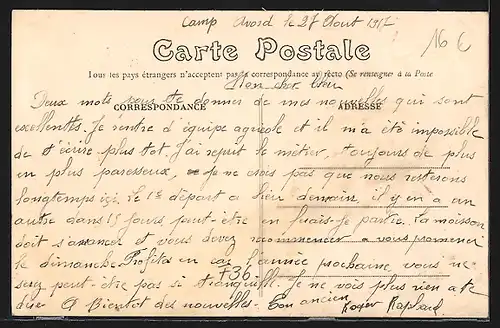 Camp Avord le 27 Aout 191
16 €
Carte Postale
Tous les pays étrangers n'acceptent pas la correspondance au recto (Se renseigner à la Poste
Mon cher
CORRESPONDANCE
ADRESSE
Deux mots pour te donner de mes nouvelles qui sont
excellentes. Je rentre d'équipe agricole et il m'a été impossible
de t'écrire plus tot. J'ai repris le métier, toujours de plus
en plus paresseux, Je ne crois pas que nous resterons
longtemps ici. Le 1er départ a lieu demain, il y en a un
autre dans 15 jours, peut-être en ferais-je partie. La moisson
doit s'avancer et vous devez recommencer a vous promener
le dimanche. Profitez en car l'année prochaine, vous ne
serez peut-être pas si tranquille. Je ne vois plus rien a te
dire A Bientot des nouvelles. Ton ancien Roger Raphael
T36.